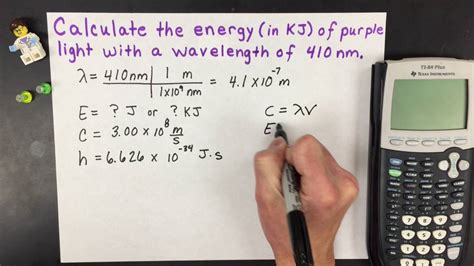 Calculate the energy (in KJ) of purple
light with a wavelength of 410 nm.
λ = 410nm | 1 m
1x10⁹ nm = 4.1 x 10⁻⁷ m
E = ? J or ? KJ
C = 3.00 x 10⁸ m/s
h = 6.626 x 10⁻³⁴ J·s
C = λν
E
TI-84 Plus
TEXAS INSTRUMENTS